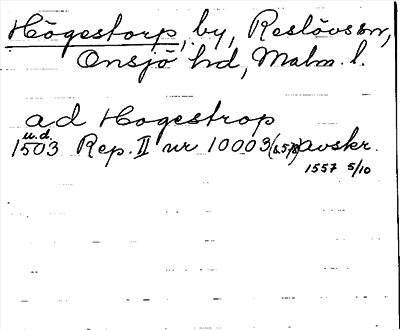 Högestorp, by, Reslövs sn,
Onsjö hd, Malm. l.
ad Hogestrop
u.d.
1503 Rep. II nr 10003 (s.578) avskr.
1557 5/10